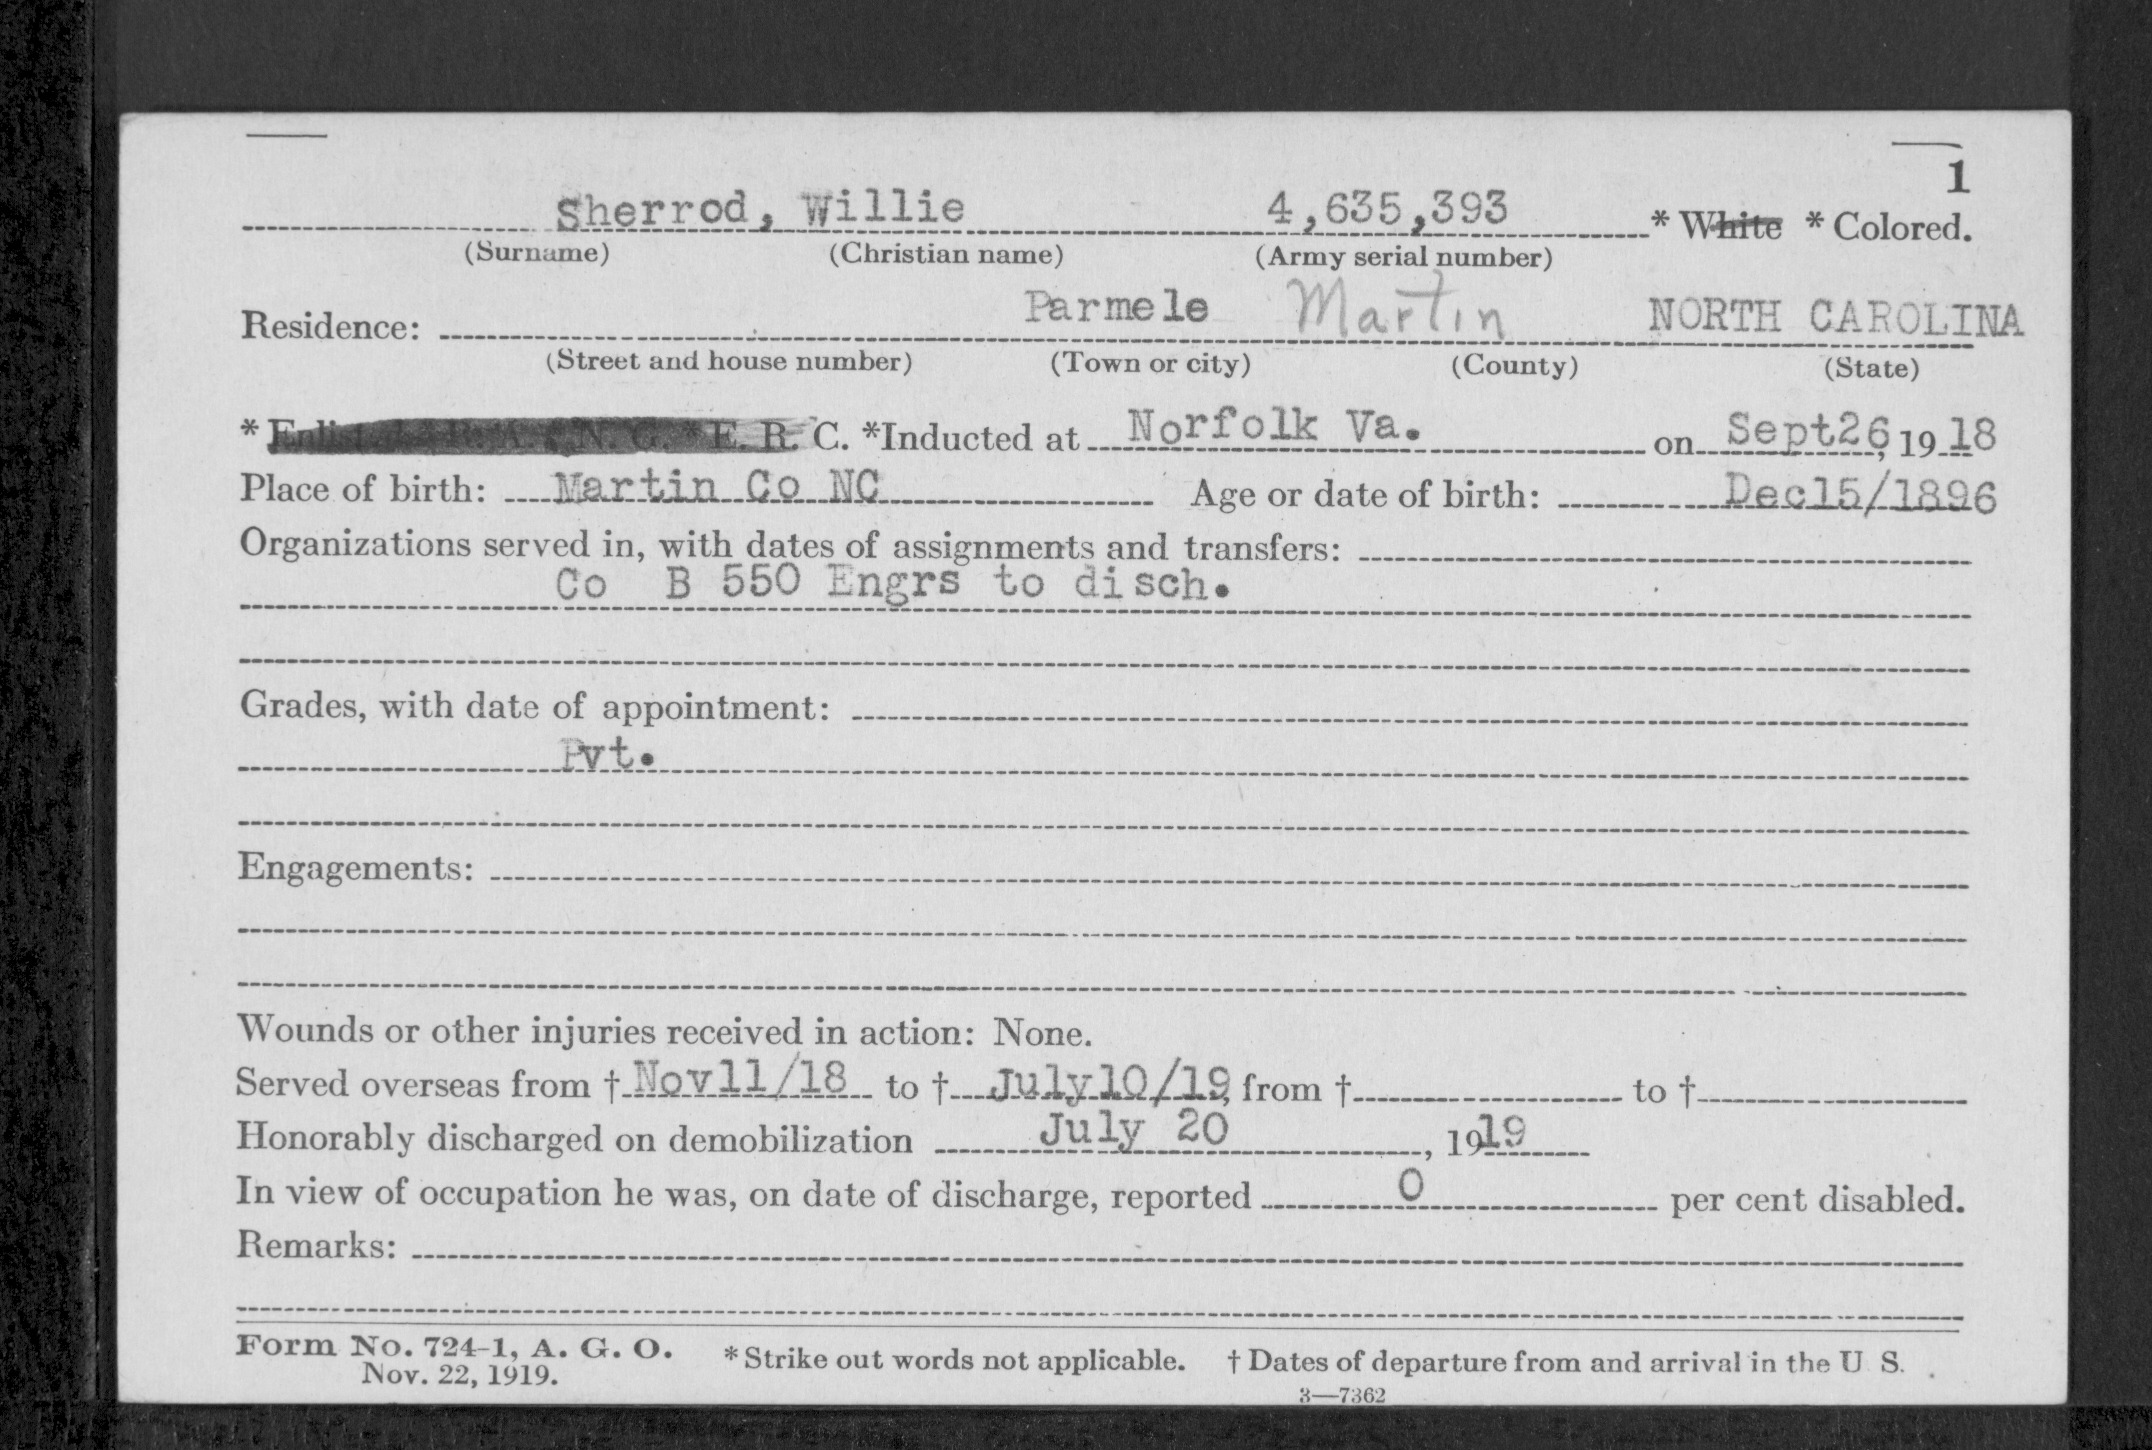 1
Sherrod, Willie 4,635,393 * White * Colored.
(Surname) (Christian name) (Army serial number)
Residence: Parmele Martin NORTH CAROLINA
(Street and house number) (Town or city) (County) (State)
* Enlisted * R. A. * N. G. * E. R. C. *Inducted at Norfolk Va. on Sept26, 1918
Place of birth: Martin Co NC Age or date of birth: Dec15/1896
Organizations served in, with dates of assignments and transfers:
Co B 550 Engrs to disch.
Grades, with date of appointment:
Pvt.
Engagements:
Wounds or other injuries received in action: None.
Served overseas from † Nov11/18 to † July10/19, from † to †
Honorably discharged on demobilization July 20, 1919
In view of occupation he was, on date of discharge, reported 0 per cent disabled.
Remarks:
Form No. 724-1, A. G. O. * Strike out words not applicable. † Dates of departure from and arrival in the U S.
Nov. 22, 1919.
3—7362